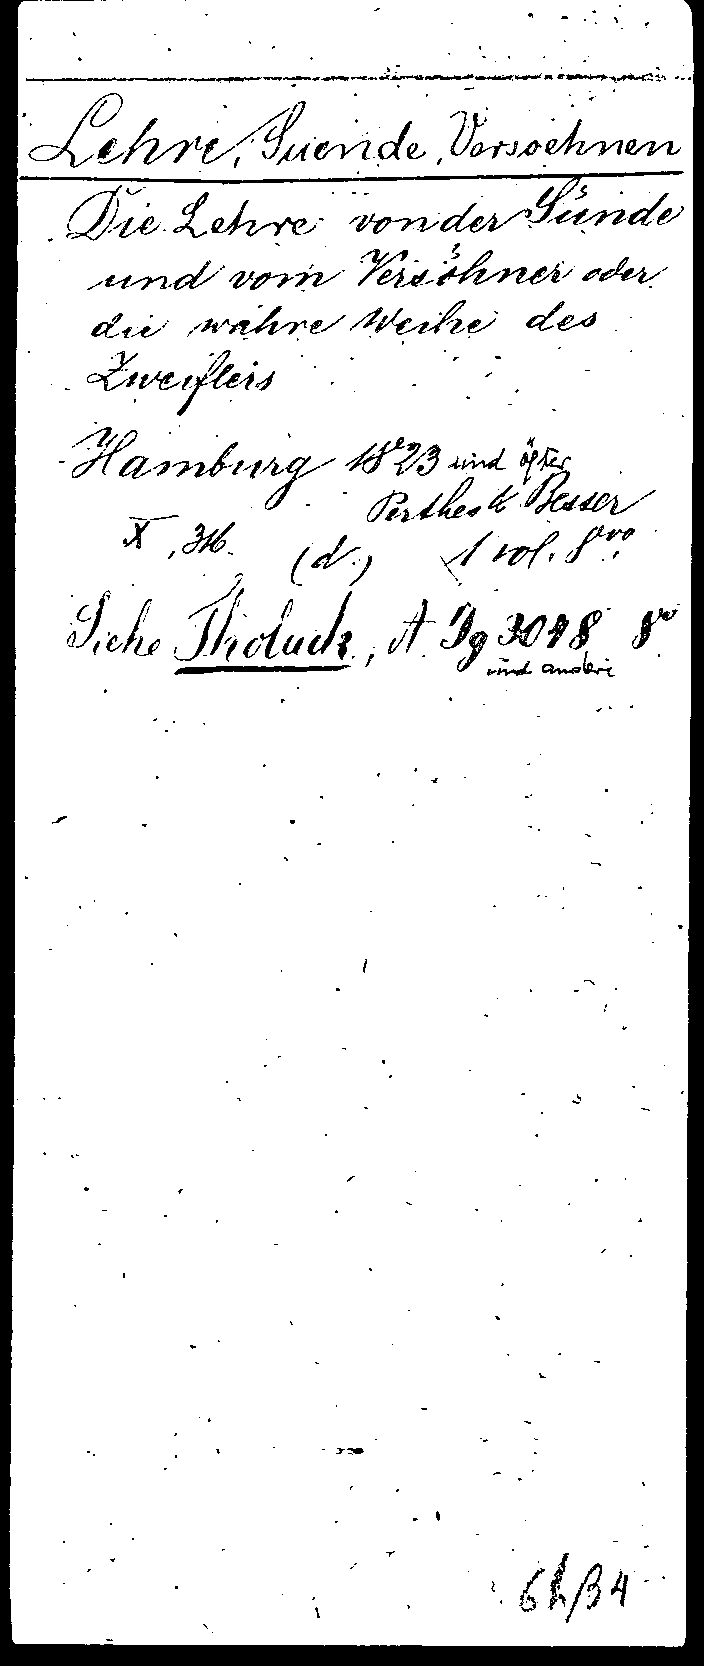 Lehre, Suende, Versoehnen
Die Lehre von der Sünde
und vom Versöhner oder
die wahre Weihe des
Zweiflers
Hamburg 1823 und öfter
Perthes & Besser
X, 316. (d.) 1 vol. 8vo.
Siehe Tholuck, A. Dg 3098 8vo
und andere